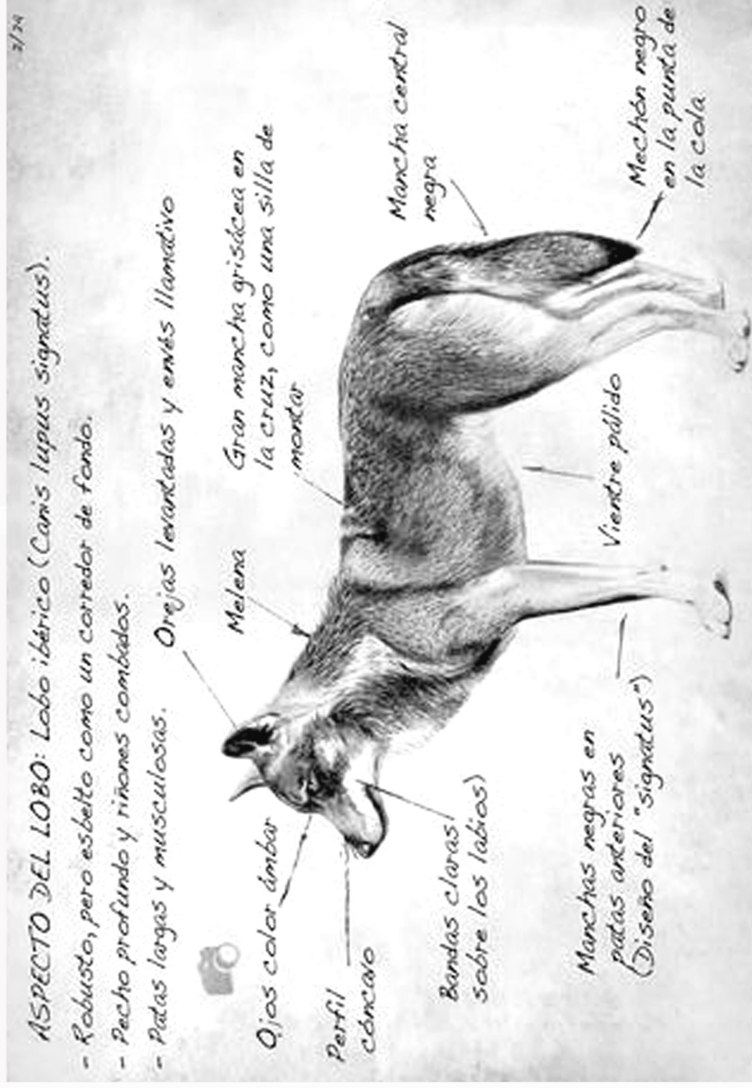 2/24
ASPECTO DEL LOBO: Lobo ibérico (Canis lupus signatus).
- Robusto, pero esbelto como un corredor de fondo.
- Pecho profundo y riñones combados.
- Patas largas y musculosas.
Orejas levantadas y envés llamativo
Melena
Gran mancha grisácea en
la cruz, como una silla de
montar
Mancha central
negra
Mechón negro
en la punta de
la cola
Ojos color ámbar
Perfil
cóncavo
Bandas claras
sobre los labios)
Vientre pálido
Manchas negras en
patas anteriores
(Diseño del "signatus")